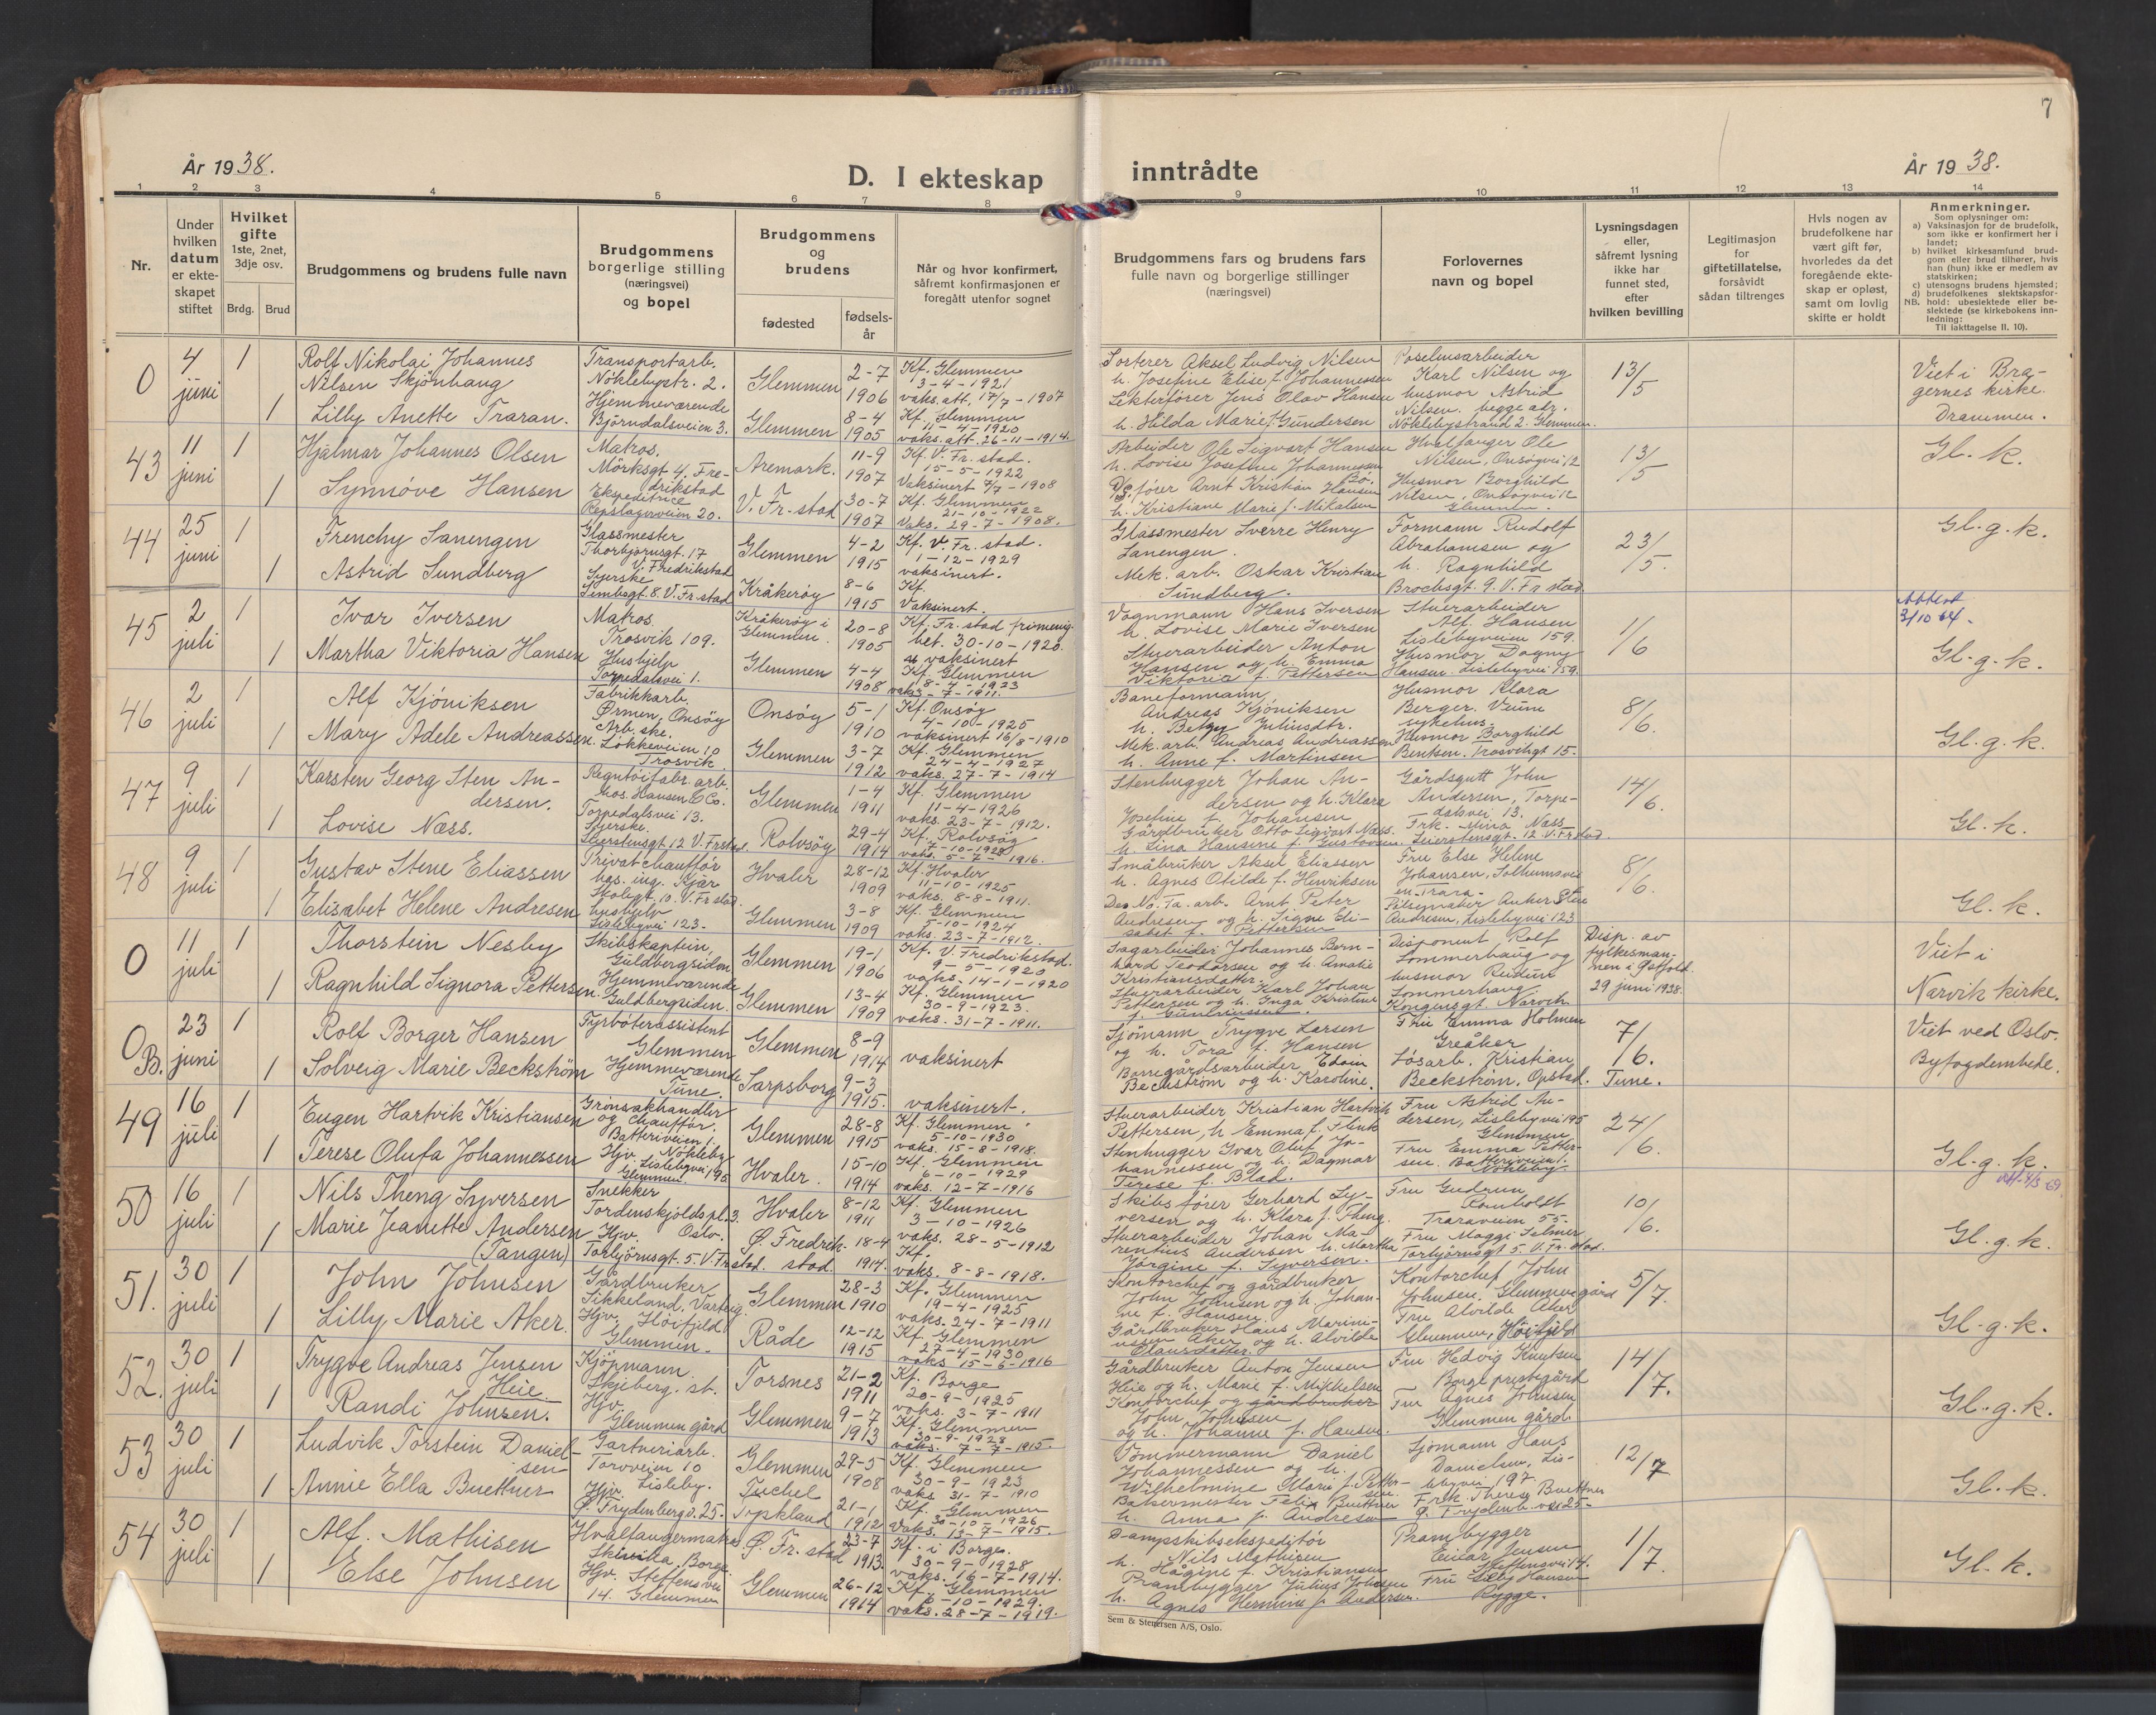 7
År 1938.
D. I ekteskap inntrådte
År 1938.
1 2 3 4 5 6 7 8 9 10 11 12 13 14
Nr.
Under hvilken datum er ekteskapet stiftet
Hvilket gifte 1ste, 2net, 3dje osv.
Brdg. Brud
Brudgommens og brudens fulle navn
Brudgommens borgerlige stilling (næringsvei) og bopel
Brudgommens og brudens
fødested
fødsels-år
Når og hvor konfirmert, såfremt konfirmasjonen er foregått utenfor sognet
Brudgommens fars og brudens fars fulle navn og borgerlige stillinger (næringsvei)
Forlovernes navn og bopel
Lysningsdagen eller, såfremt lysning ikke har funnet sted, efter hvilken bevilling
Legitimasjon for giftetillatelse, forsåvidt sådan tiltrenges
Hvis nogen av brudefolkene har vært gift før, hvorledes da det foregående ekteskap er opløst, samt om lovlig skifte er holdt
Anmerkninger.
Som oplysninger om:
a) Vaksinasjon for de brudefolk, som ikke er konfirmert her i landet;
b) hvilket kirkesamfund brudgom eller brud tilhører, hvis han (hun) ikke er medlem av statskirken;
c) utensogns brudens hjemsted;
d) brudefolkenes slektskapsforhold: ubeslektede eller beslektede (se kirkebokens innledning:
NB.
Til iakttagelse II. 10).
0 4 juni 1 Rolf Nikolai Johannes Nilsen Skjönhaug Transportarb. Nöklebystr. 2. Glemmen 2-7 1906 Kf. Glemmen 3-4-1921 vaks. att. 17/7-1907
1 Lilly Anette Traran. Hjemmeværende Björndalsveien 3. Glemmen 8-4 1905 Kf. Glemmen 11-4-1920 vaks. att. 26-11-1914.
Sorterer Aksel Ludvig Nilsen h. Josefine Elise f. Johannessen
Lekterfører Jens Olav Hansen h. Hilda Marie f. Gundersen
Karl Nilsen og husmor Astrid Nilsen. begge adr. Nöklebystrand 2. Glemmen.
13/5
Viet i Bragernes kirke. Drammen.
43 11 juni 1 Hjalmar Johannes Olsen Matros. Mörksgt. 4, Fredrikstad Aremark. 11-9 1907 Kf. V. Fr. stad. 15-5-1922 Vaksinert 7/7-1908
1 Synnöve Hansen Ekspeditrice Repslagerveien 20. V. Fr. stad 30-7 1907 Kf. Glemmen 21-10-1922 Vaks. 29-7-1908.
Arbeider Ole Sigvart Hansen h. Lovise Josefine Johannessen Bö.
fører Arnt Kristian Hansen h. Kristiane Marie f. Mikalsen
Hvalfanger Ole Nilsen, Onsöyvei 12
Husmor Borghild Nilsen, Onsöyvei 12 Glemmen.
13/5
Gl. k.
44 25 juni 1 Frenchy Sanengen Glassmester Thorbjörnsgt. 17 V. Fredrikstad Glemmen 4-2 1915 Kf. V. Fr. stad. 1-12-1929 vaksinert.
1 Astrid Sundberg Syerske V. Fr. stad Kråkeröy 8-6 1915 Kf. Vaksinert.
Glassmester Sverre Henry Sanengen.
Mek. arb. Oskar Kristian Sundberg.
Formann Rudolf Abrahamsen og h. Ragnhild Brochsgt. 9. V. Fr stad.
23/5.
Gl. g. k.
45 2 juli 1 Ivar Iversen Matros. Trosvik 109. Kråkeröy i Glemmen. 20-8 1905 Kf. Fr. stad frimenighet. 30-10-1920. vaksinert
1 Martha Viktoria Hansen Hushjelp Torpedalsvei 1. Glemmen 4-4 1908 Kf. Glemmen 8-4-1923 vaks. -7-1911.
Vognmann Hans Iversen h. Lovise Marie Iversen
Stuerarbeider Anton Hansen og h. Emma Viktoria f. Pettersen
Stuerarbeider Alf. Hansen Lislebyveien 159.
Husmor Dagny Hansen. Lislebyvei 159.
1/6
Attest 3/10 64.
Gl. g. k.
46 2 juli 1 Alf Kjöniksen Fabrikkarb. Ørmen, Onsöy Onsöy 5-1 1910 Kf. Onsöy 4-10-1925 vaksinert 16/8-1910
1 Mary Adele Andreassen. Arb. ske. Lökkeveien 10 Trosvik. Glemmen 3-7 1912 Kf. Glemmen 24-4-1927 vaks. 27-7-1914
Baneformann Andreas Kjöniksen h. Betzy Juliusdtr.
Mek. arb. Andreas Andreassen h. Anne f. Martinsen
Husmor Klara Berger. Veum sykehus.
Husmor Borghild Bentsen. Trosvikgt 15.
8/6.
Gl. g. k.
47 9 juli 1 Karsten Georg Sten Andersen. Regntöifabr. arb. hos. Hansen & Co. Torpedalsvei 13. Glemmen 1-4 1911 Kf. Glemmen 11-4-1926 vaks. 23-7-1912.
1 Lovise Næss. Syerske. Leirstensgt. 12 V. Frstad. Rolvsöy 29-4 1914 Kf. Rolvsöy 7-10-1928 vaks. 5-7-1916.
Stenhugger Johan Andersen og h. Klara Josefine f. Johansen
Gårdbruker Otto Sigvart Næss. h. Lina Hansine f. Gustavsen.
Gårdsgutt John Andersen, Torpedalsvei 13.
Frk. Mina Næss Leirstensgt. 12. V. Fr stad
14/6.
Gl. k.
48 9 juli 1 Gustav Stene Eliassen Privat chaufför hos. ing. Kjær Skolegt. 10. V. Fr stad. Hvaler 28-12 1909 Kf. Hvaler 11-10-1925 vaks. 8-8-1911.
1 Elisabet Helene Andresen hushjelp Lislebyvei 123. Glemmen 3-8 1909 Kf. Glemmen 5-10-1924 vaks. 23-7-1912.
Småbruker Aksel Eliassen h. Agnes Otilde f. Henriksen
De No. Fa. arb. Arnt Peter Andresen og h. Signe Elisabet f. Pettersen
Fru Else Helene Johansen, Solhumsveien Trara.
Anker Stene Andresen, Lislebyvei 123
8/6.
Gl. k.
0 11 juli 1 Thorstein Nesby Skibskaptein, Guldbergsiden Glemmen 19-1 1906 Kf. V. Fredrikstad. 9-5-1920 vaks. 14-1-1920
1 Ragnhild Signora Pettersen. Hjemmeværende Guldbergsiden. Glemmen 13-4 1909 Kf. Glemmen 30-9-1923. vaks. 31-7-1911.
Sagarbeider Johannes Bernhard Teodorsen og h. Amalie Kristiansdatter.
Stuerarbeider Karl Johan Pettersen og h. Inga Kristine
Disponent Rolf Sommerhaug og husmor Reidun Sommerhaug Kongensgt Narvik
Disp. av fylkesmannen i Østfold. 29 juni 1938.
Viet i Narvik kirke.
0 B. 23 juni 1 Rolf Borger Hansen Fyrböterassistent Glemmen Glemmen 8-9 1914 vaksinert
1 Solveig Marie Beckström Hjemmeværende Tune. Sarpsborg 9-3 1915. vaksinert.
Sjömann Trygve Larsen og h. Tora f. Hansen
Bomgårdsarbeider Edvin Beckström og h. Karoline.
Fru Emma Holmen Greåker
Løsarb. Kristian Beckström. Opstad. Tune.
7/6.
Viet ved Oslo. Byfogdembede.
49 16 juli 1 Eugen Hartvik Kristiansen Grönsakhandler og chauffør. Batteriveien 1. Nökleby Glemmen 28-8 1915 Kf. Glemmen 5-10-1930 vaks. 15-8-1918.
1 Terese Olufa Johannessen Hjv. Lislebyvei 195 Glemmen. Hvaler. 15-10 1914 Kf. Glemmen 6-10-1929 vaks. 12-7-1916
Stuerarbeider Kristian Hartvik Pettersen, h. Emma f. Flink
Stenhugger Ivar Oluf Johannessen og h. Dagmar Terese f. Blad.
Fru Astrid Andersen, Lislebyvei 195 Glemmen
Fru Emma Pettersen. Batteriveien 1. Nökleby.
24/6.
Gl. g. k.
50 16 juli 1 Nils Theng Syversen Snekker Tordenskjolds pl. 3. Oslo. Hvaler 8-12 1911 Kf. Glemmen 3-10-1926 vaks. 28-5-1912
1 Marie Jeanette Andersen (Tangen) Hjv. Torbjörnsgt. 5. V. Fr. stad. Ø. Fredrikstad 18-4 1914. Kf. vaks. 8-8-1918.
Skibsfører Gerhard Syversen og h. Klara f. Theng.
Stuerarbeider Johan Marentius Andersen h. Martha Jörgine f. Syversen.
Fru Gudrun Romholdt Traraveien 55.
Fru Maggi Selmer Torbjörnsgt 5. V. Fr. stad.
10/6.
Gl. g. k.
51. 30 juli 1 John Johnsen Gårdbruker Sikkeland, Varteig Glemmen 28-3 1910 Kf. Glemmen 19-4-1925 vaks. 24-7-1911
1 Lilly Marie Aker. Hjv. Höifjeld Glemmen. Råde 12-12 1915 Kf. Glemmen 27-4-1930 vaks 15-6-1916
Kontorchef og gårdbruker John Johnsen og h. Johanne f. Hansen.
Gårdbruker Hans Mariniussen Aker og h. Alvilde Olausdatter.
Kontorchef John Johnsen, Glemmen gård
Fru Alvilde Aker Glemmen, Höifjeld
5/7.
Gl. g. k.
52. 30 juli 1 Trygve Andreas Jensen Heie. Kjöpmann. Skjeberg. st. Torsnes 21-2 1911 Kf. Borge 20-9-1925 vaks. 3-7-1911
1 Randi Johnsen. Hjv. Glemmen gård Glemmen 9-7 1913 Kf. Glemmen 30-9-1928 vaks. 7-7-1915.
Gårdbruker Anton Jensen Heie og h. Marie f. Mikkelsen
Kontorchef og gårdbruker John Johnsen og h. Johanne f. Hansen.
Fru Hedvig Knutsen Borge prestegård
Fru Agnes Johnsen Glemmen gård.
14/7.
Gl. g. k.
53 30 juli 1 Ludvik Torstein Danielsen Gartneriarb. Torvveien 10 Lisleby. Glemmen 29-5 1908 Kf. Glemmen 30-9-1923 vaks. 31-7-1910
1 Annie Ella Buettner Hjv. Ø. Frydenberg v. 25. Tyskland 21-1 1912 Kf. Glemmen 30-10-1926 Vaks. 13-7-1915.
Tömmermann Daniel Johannessen og h. Wilhelmine Marie f. Pettersen.
Bakermester Felix Buettner h. Anna f. Andresen
Sjömann Hans Danielsen, Lislebyvei 197.
Frk. Therese Buettner Ø. Frydenb. vei 25.
12/7
Gl. k.
54 30 juli 1 Alf. Mathisen Hvalfangermatros. Borge. Ø. Fr. stad 23-7 1913. Kf. i Borge. 30-9-1928 vaks. 16-7-1914.
1 Else Johnsen Hjv. Steffensvei 14. Glemmen Glemmen 26-12 1914 Kf. Glemmen 6-10-1929. vaks. 28-7-1919.
Dampskibsekspeditör Nils Mathisen h. Hågine f. Kristiansen
Prambygger Julius Johnsen h. Agnes Hermine f. Andersen.
Prambygger Einar Jensen Steffensvei 14.
Fru Hansen Rygge.
1/7.
Gl. k.
Sem & Stenersen A/S, Oslo.